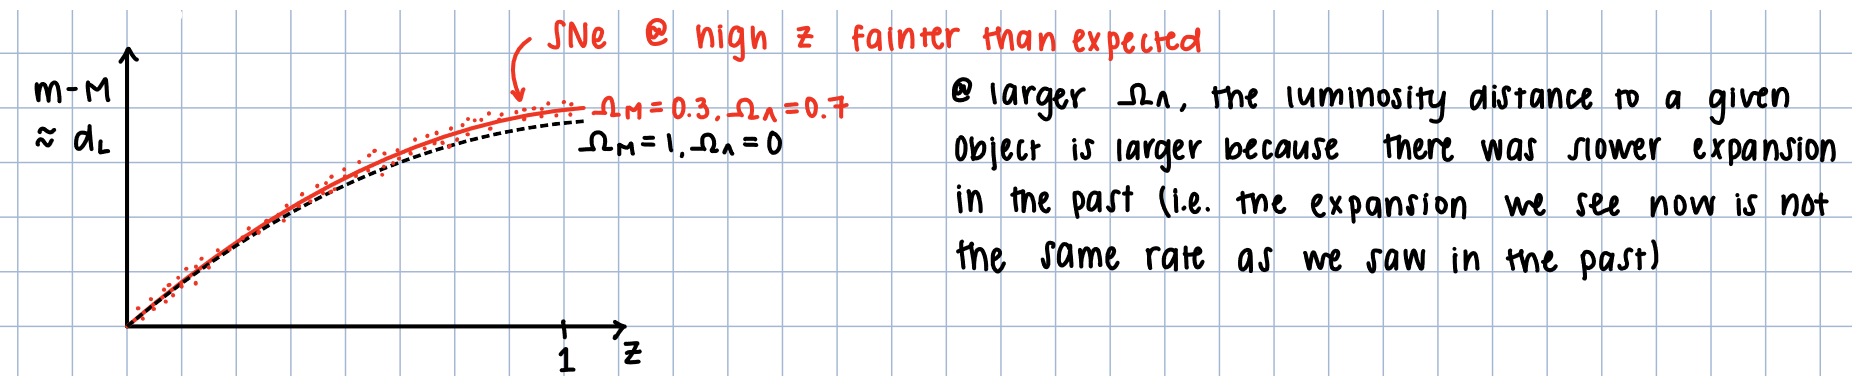 SNe @ high z fainter than expected
m-M
≈ dL
ΩM=0.3, ΩΛ=0.7
ΩM=1, ΩΛ=0
1
z
@ larger ΩΛ, the luminosity distance to a given
object is larger because there was slower expansion
in the past (i.e. the expansion we see now is not
the same rate as we saw in the past)